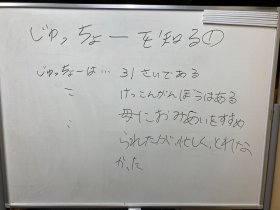 じゅっちょーを知る①
じゅっちょーは… 31さいである
〃 けっこんがんぼうはある
〃 母におみあいをすすめ
られたが忙しく、とれな
かった